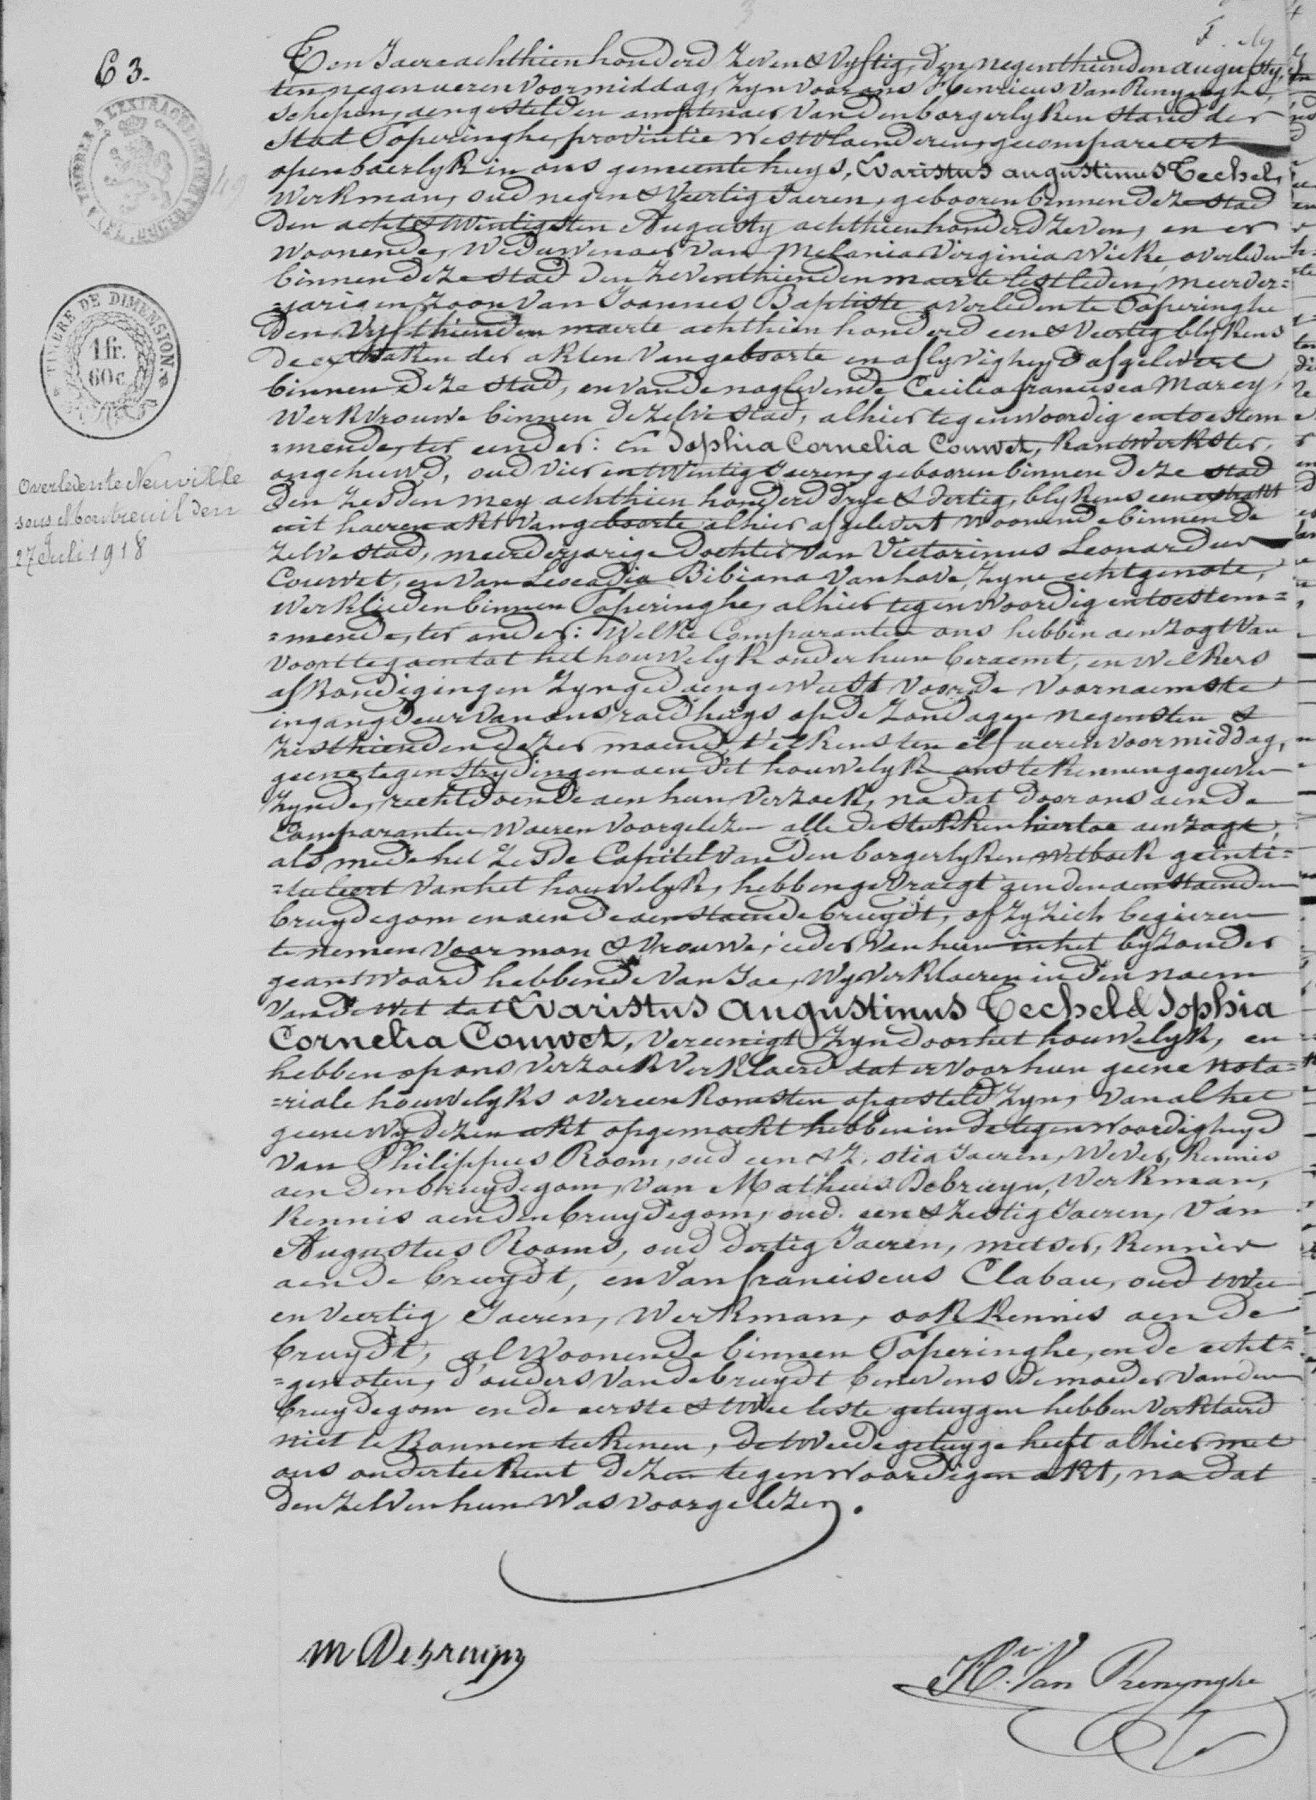 63.
TIMBRE DE DIMENSION
1 fr.
60 c.
Overleden te Neuville
sous Montreuil den
27 Juli 1918
Ten Jaere achthien honderd zeven & vyftig, den negenthienden augusty,
ten negen ueren voormiddag, zyn voor ons Henricus Van Renynghe,
schepen, aengestelden amptenaer van den borgerlyken stand der
stad Poperinghe, provintie Westvlaenderen, gecompareert
openbaerlyk in ons gemeentehuys, Evaristus augustinus Techel,
Werkman, oud negen & veertig Jaeren, gebooren binnen deze stad
den acht & twintigsten Augusty achthien honderd zeven, en er
woonende, Weduwenaer van Melania Virginia Wicke, overleden
binnen deze stad den zeventhienden maerte lestleden, meerder=
=jarigen zoon van Joannes Baptiste overleden te Poperinghe
den vyfthienden maerte achthien honderd een & veertig blykens
de extrakten der akten van geboorte en aflyvigheyd afgelevert
binnen deze stad, en van de naglevende Cecilia francisca Marcy,
Werkvrouwe binnen dezelve stad, alhier tegenwoordig en toestem
=mende, ter eender: En Sophia Cornelia Couwet, kantwerkster,
ongehuwd, oud vier en twintig Jaeren, gebooren binnen deze stad
den zesden mey achthien honderd drye & dertig, blykens een extrakt
uit haeren akt van geboorte alhier afgelevert woonende binnen de
zelve stad, meerderjarige dochter van Victorinus Leonardus
Couwet, en van Leocadia Bibiana Vanhove, zyne echtgenote,
Werklieden binnen Poperinghe, alhier tegenwoordig en toestem=
=mende, ter ander: Welke Comparanten ons hebben aenzogt van
voort te gaen tot het houwelyk onder hun beraemt, en welkers
afkondigingen zyn gedaen geweest voor de voornaemste
ingangdeur van ons raedhuys op de zondagen negensten &
zesthienden dezer maend, telkens ten elf ueren voormiddag,
geene tegenstrydingen aen dit houwelyk ons te kennen gegeven
zynde, rechtdoende aen hun verzoek, na dat door ons aen de
Comparanten waeren voorgelezen alle de stukken hiertoe aenzogt,
als mede het zesde Capitel van den borgerlyken wetboek geinti=
=tuleert van het houwelyk, hebben gevraegt aen den aenstaenden
bruydegom en aen de aenstaende bruydt, of zy zich begieren
te nemen voor man & vrouwe; ieder van hun in het byzonder
geantwoord hebbende van Jae, Wy verklaeren in den naem
van de wet dat Evaristus Augustinus Techel & Sophia
Cornelia Couwet, vereenigt zyn door het houwelyk, en
hebben op ons verzoek verklaerd dat er voor hun geene nota=
=riale houwelyks overeenkomsten opgesteld zyn, van al het
geene wy dezen akt opgemaekt hebben in de tegenwoordigheyd
van Philippus Room, oud een & Jaeren, Wever, kennis
aen den bruydegom, van Matheus Debruyn, Werkman,
kennis aen den bruydegom, oud een & zestig Jaeren, van
Augustus Rooms, oud dertig Jaeren, metser, kennis
aen de bruydt, en van franciscus Clabau, oud twee
en veertig Jaeren, Werkman, ook kennis aen de
bruydt, al woonende binnen Poperinghe, en de echt=
=genoten, d'ouders van de bruydt benevens de moeder van den
bruydegom en de eerste & twee leste getuygen hebben verklaerd
niet te konnen teekenen, de tweede getuyge heeft alhier met
ons onderteekent dezen tegenwoordigen akt, na dat
den zelven hun was voorgelezen.
M Debruyn
He. Van Renynghe